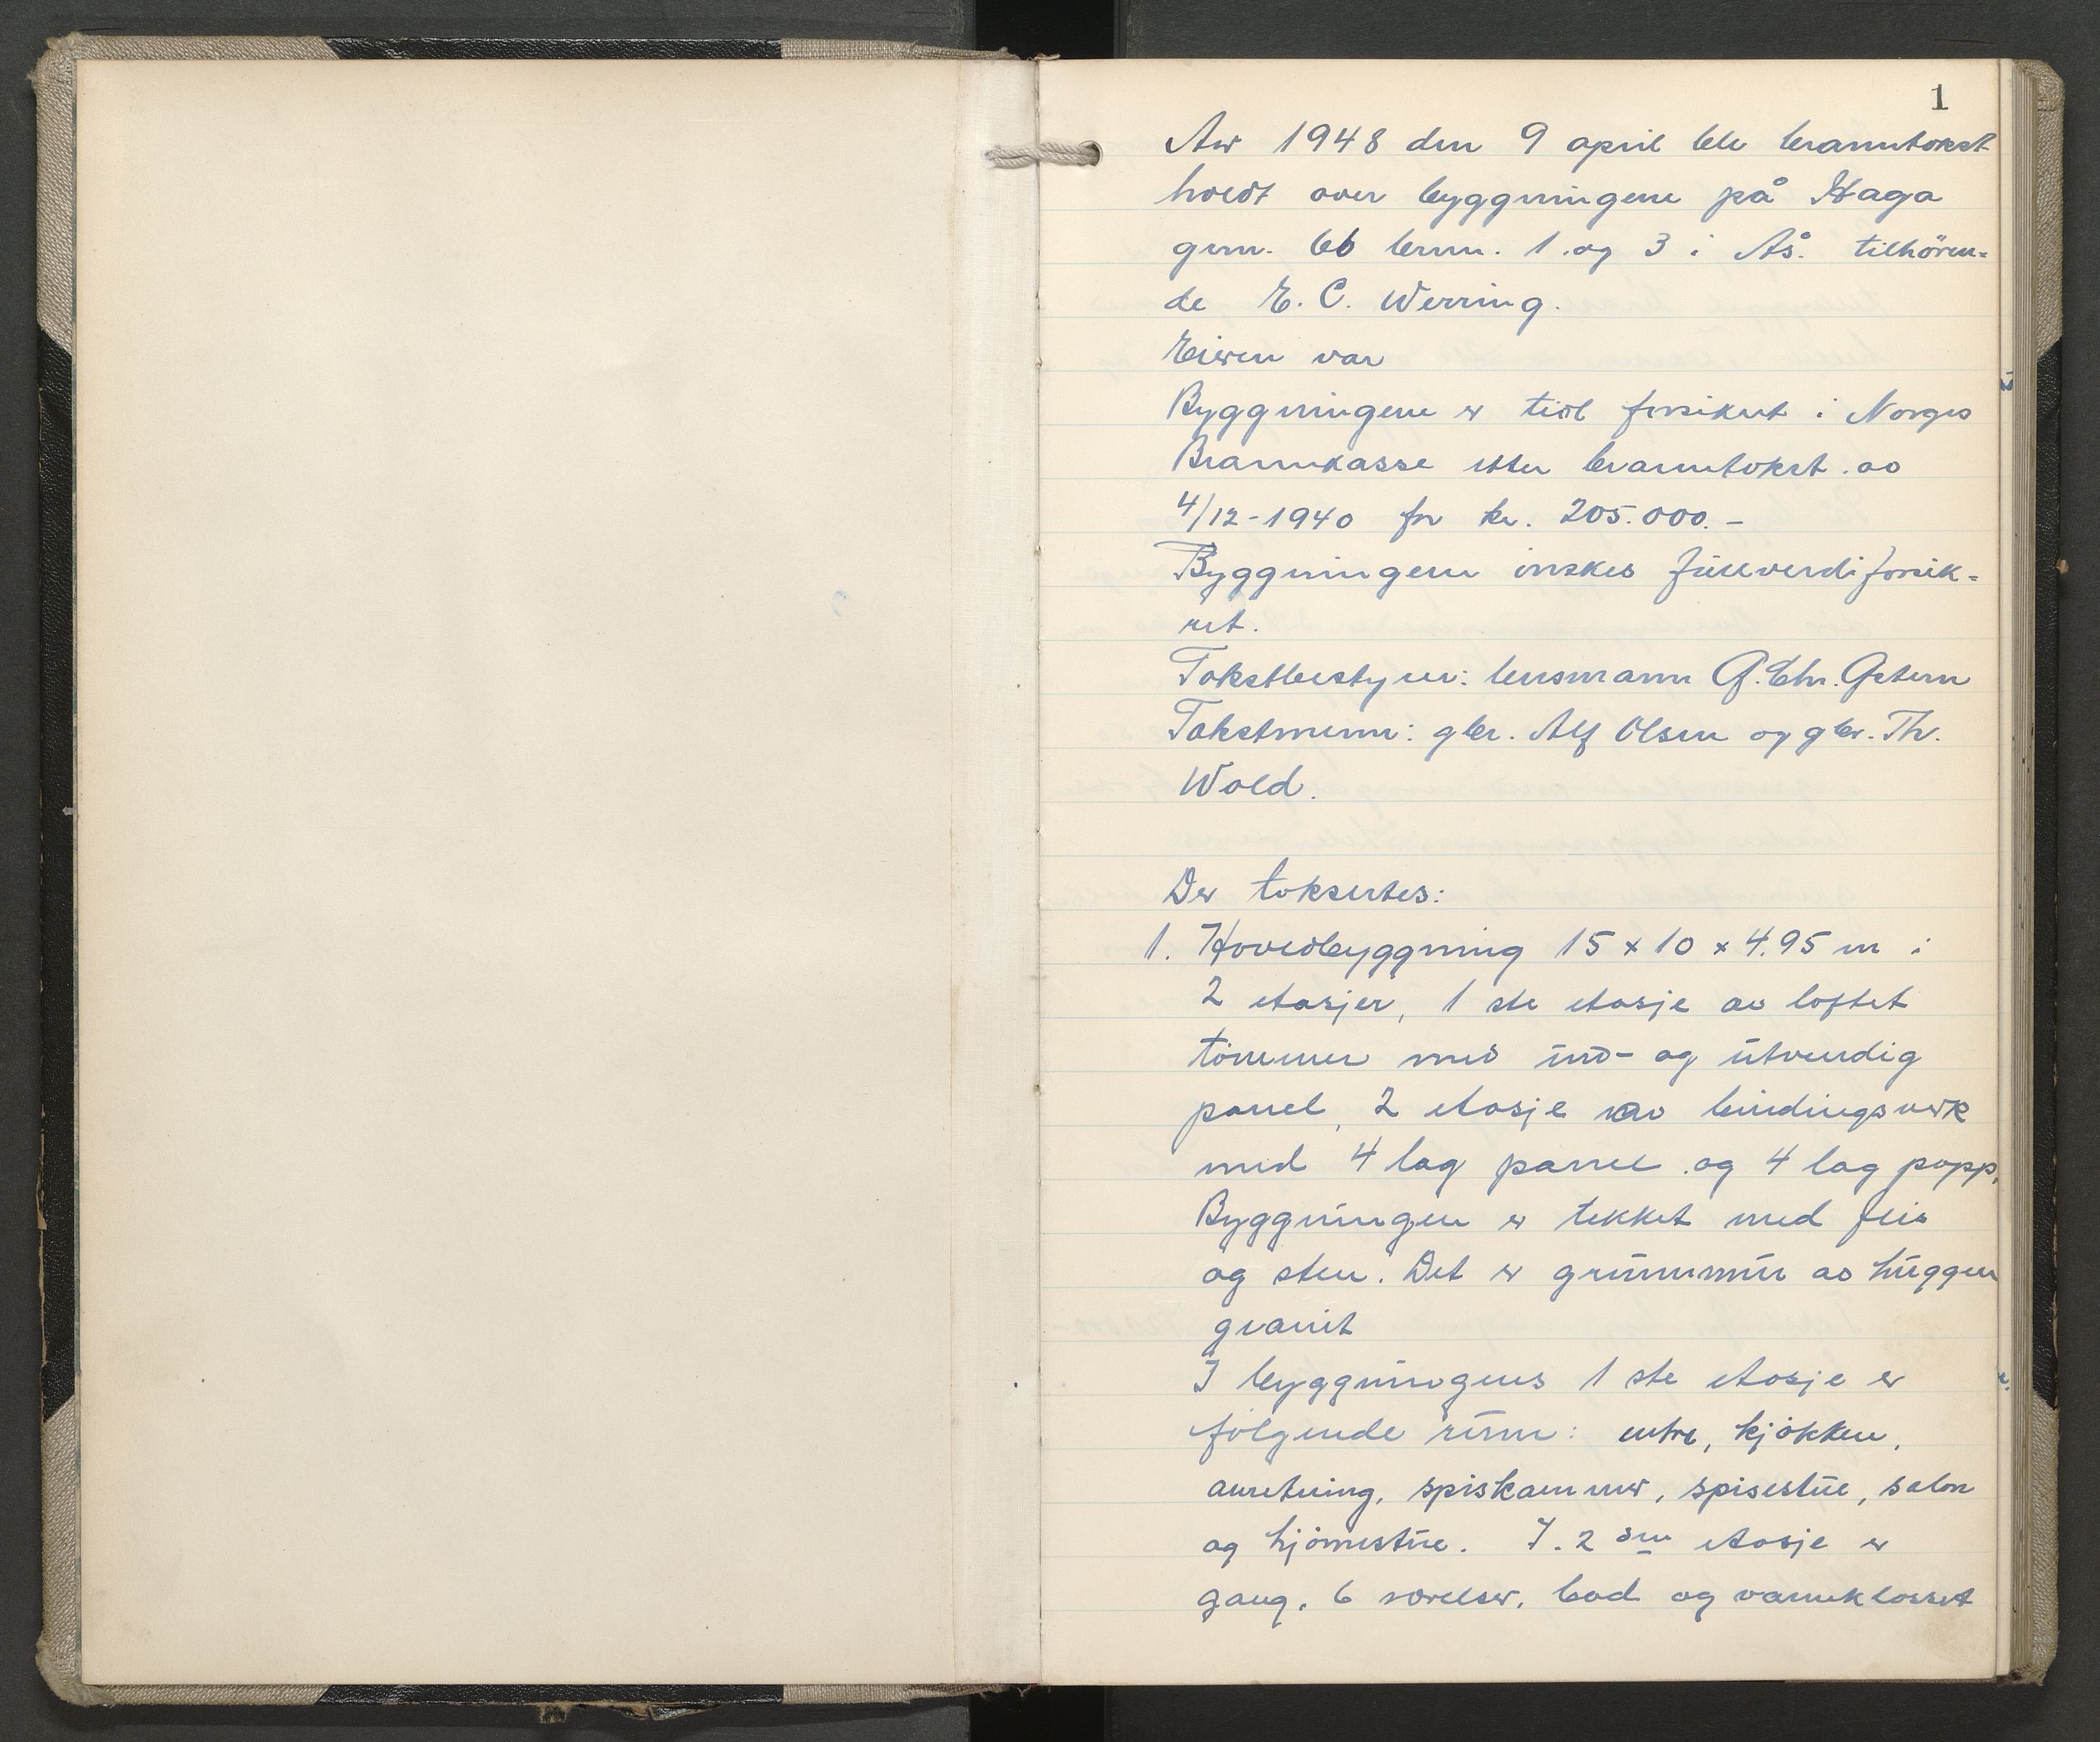 1
År 1948 den 9 april ble branntakst
holdt over byggningene på Haga
gnr. 66 brnr. 1 og 3 i Ås. tilhören-
de E. C. Werring.
Eieren var
Byggningene er tidl forsikret i Norges
Brannkasse etter branntakst av
4/12-1940 for kr. 205.000.-
Byggningene önskes fullverdiforsik-
ret.
Takstbestyrer: lensmann G. Chr.
Takstmenn: gbr. Alf Olsen og gbr. Th.
Wold.
Der takseres:
1. Hovedbyggning 15 x 10 x 4.95 m i
2 etasjer, 1 ste etasje av loftet
tömmer med inn- og utvendig
panel, 2 etasje av bindingsverk
med 4 lag panel og 4 lag papp.
Byggningen er tekket med flis
og sten. Det er grunnmur av huggen
granit
I byggningens 1 ste etasje er
fölgende rum: entre, kjökken,
anretning, spiskammer, spisestue, salon
og hjörnestue. I. 2 den etasje er
gang, 6 værelser, bad og vannklosset